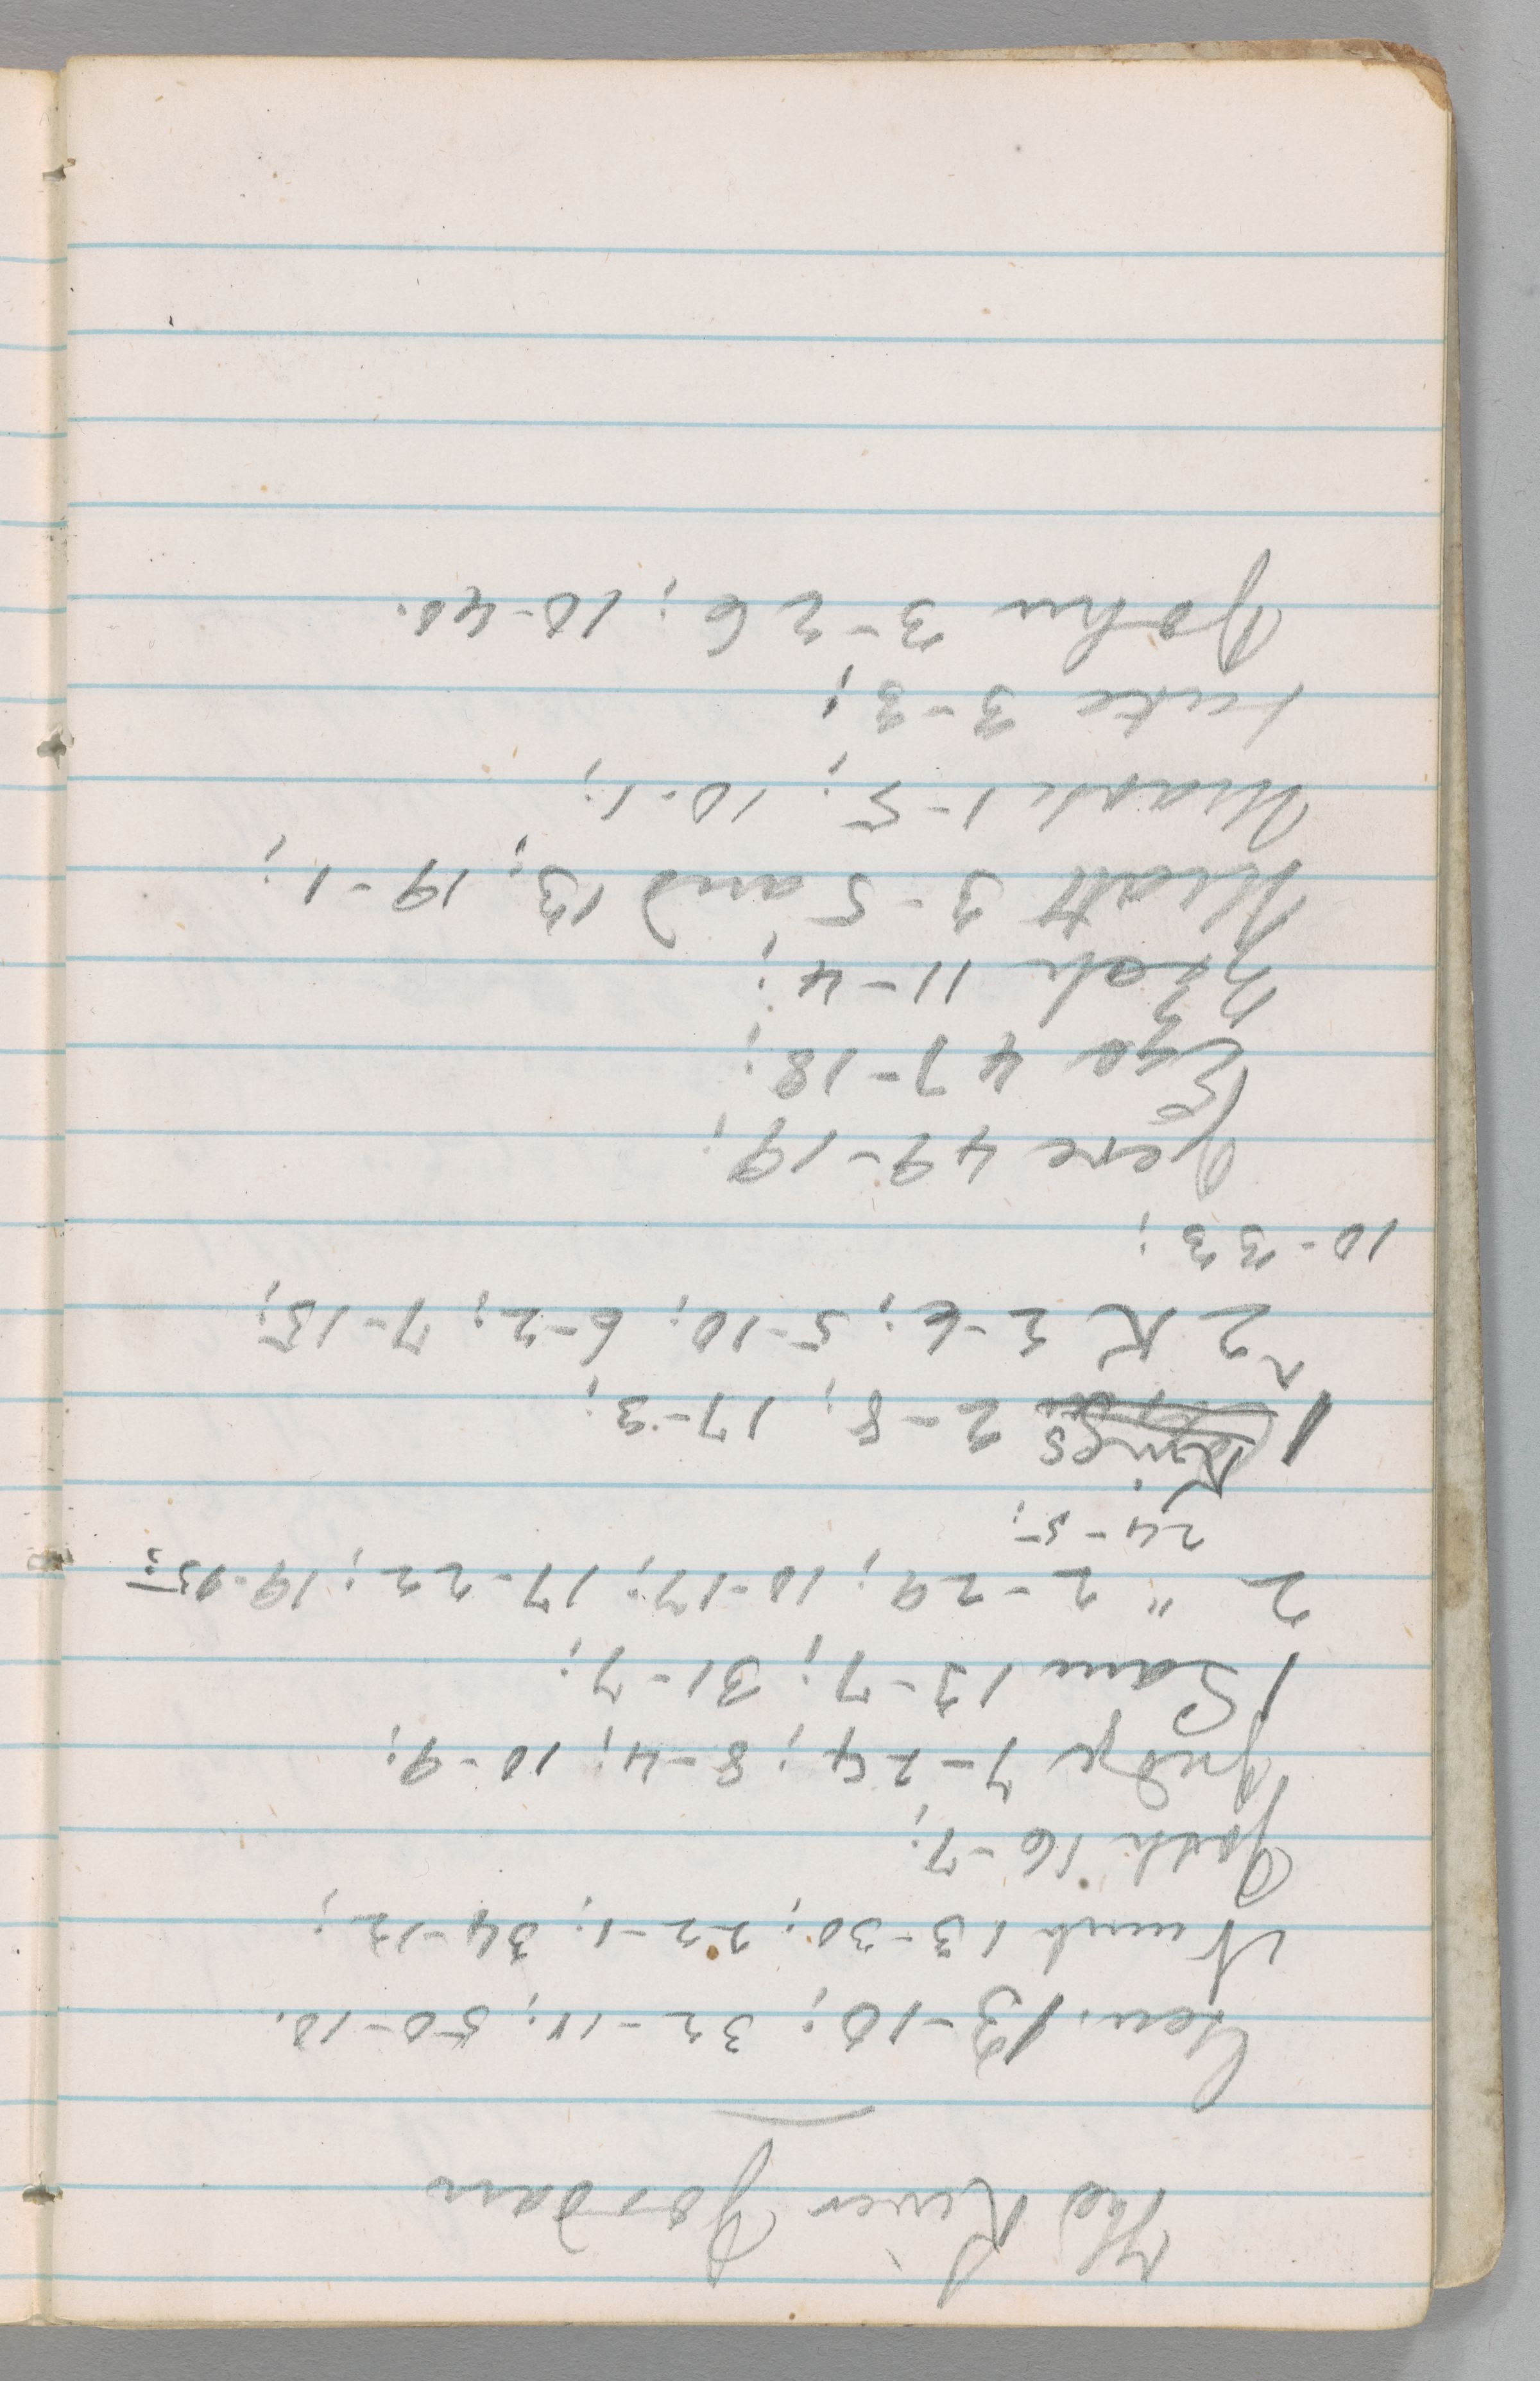 The River Jordan
Gen. 13-10; 32-10; 50-10.
Numb 13-30; 22-1; 34-12;
Josh 16-7;
Judge 7-24; 8-4; 10-9;
1 Sam 13-7; 31-7;
2 " 2-29; 10-17; 17-22; 19-15;
24-5;
1 Kings 2-8; 17-3;
2 K 2-6; 5-10; 6-2; 7-15;
10-33;
Jere 49-19;
Eze 47-18;
Zech 11-4;
Matt 3-5 and 13; 19-1;
Mark 1-5; 10-1;
Luke 3-3;
John 3-26; 10-40.